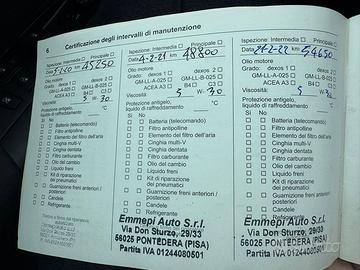 6
Certificazione degli intervalli di manutenzione
Ispezione: Intermedia Principale
Data 5-2-20 km 45250
Olio motore
Grado: dexos 1 dexos 2
GM-LL-A-025 GM-LL-B-025
ACEA A3 B4 C3
Viscosità: 5 W- 30
Protezione antigelo,
liquido di raffreddamento °C
Sì No
Batteria (telecomando)
Filtro antipolline
Elemento del filtro dell'aria
Cinghia multi-V
Cinghia dentata
Filtro carburante
Olio del cambio
Liquido freni
Kit di riparazione
dei pneumatici
Guarnizione freni anteriori /
posteriori
Candele
Refrigerante
Ispezione: Intermedia Principale
Data 4-2-21 km 48800
Olio motore
Grado: dexos 1 dexos 2
GM-LL-A-025 GM-LL-B-025
ACEA A3 B4 C3
Viscosità: 5 W- 30
Protezione antigelo,
liquido di raffreddamento °C
Sì No
Batteria (telecomando)
Filtro antipolline
Elemento del filtro dell'aria
Cinghia multi-V
Cinghia dentata
Filtro carburante
Olio del cambio
Liquido freni
Kit di riparazione
dei pneumatici
Guarnizione freni anteriori /
posteriori
Candele
Refrigerante
Emmepi Auto S.r.l.
Via Don Sturzo, 29/33
56025 PONTEDERA (PISA)
Partita IVA 01244080501
Ispezione: Intermedia Principale
Data 21-2-22 km 54650
Olio motore
Grado: dexos 1 dexos 2
GM-LL-A-025 GM-LL-B-025
ACEA A3 B4 C3
Viscosità: 5 W- 30
Protezione antigelo,
liquido di raffreddamento °C
Sì No
Batteria (telecomando)
Filtro antipolline
Elemento del filtro dell'aria
Cinghia multi-V
Cinghia dentata
Filtro carburante
Olio del cambio
Liquido freni
Kit di riparazione
dei pneumatici
Guarnizione freni anteriori /
posteriori
Candele
Refrigerante
Emmepi Auto S.r.l.
Via Don Sturzo, 29/33
56025 PONTEDERA (PISA)
Partita IVA 01244080501